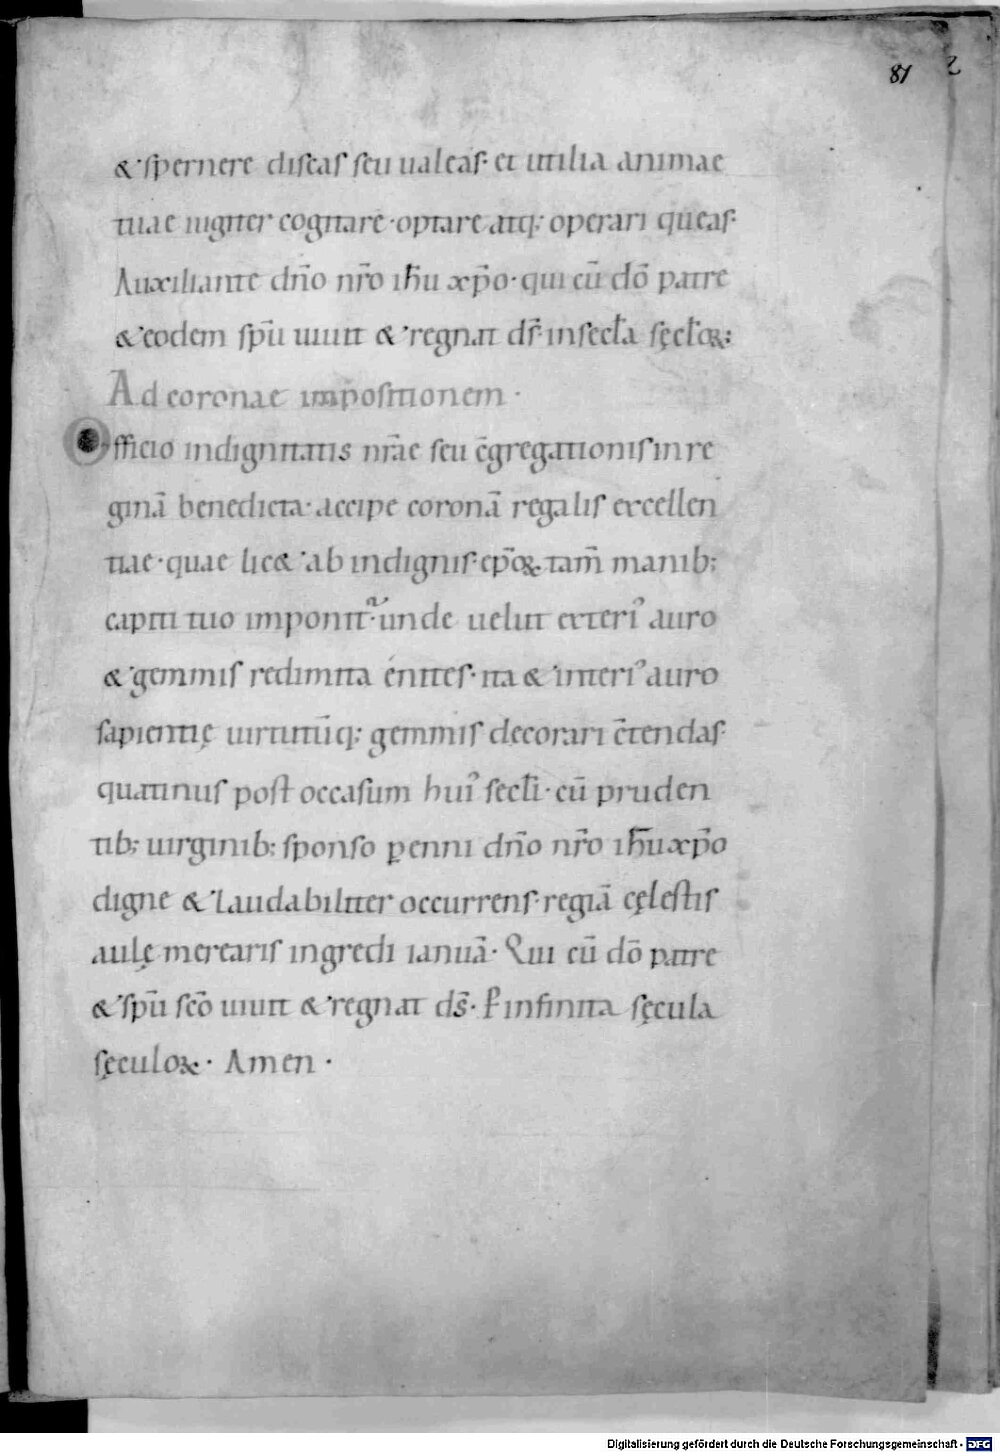 81 2
& spernere discas seu ualeas· et utilia animae
tuae iugiter cogitare· optare atq; operari queas·
Auxiliante dño nr̃o ih̅u xp̃o· qui cū dō patre
& eodem spū uiuit & regnat ds̄· in secl̄a sęcl̄oꝝ:
Ad coronae impositionem ·
Officio indignitatis nr̄ae seu c̄gregationis in re
ginā benedicta· accipe coronā regalis excellen
tiae· quae lic& ab indignis· ep̄oꝝ tam̄ manib;
capiti tuo imponit᷑· unde uelut exteri᾽ auro
& gemmis redimita enites· ita & interi᾽ auro
sapientię uirtutūq; gemmis decorari c̄tendas·
quatinus post occasum hui᾽ secl̄i· cū pruden
tib; uirginib; sponso ꝑenni dño nr̃o ih̅u xp̃o
digne & laudabiliter occurrens· regiā cęlestis
aulę merearis ingredi ianuā· Qui cū dō patre
& spū scō uiuit & regnat ds̄· ꝑ infinita sęcula
sęculoꝝ· Amen ·
Digitalisierung gefördert durch die Deutsche Forschungsgemeinschaft - DFG